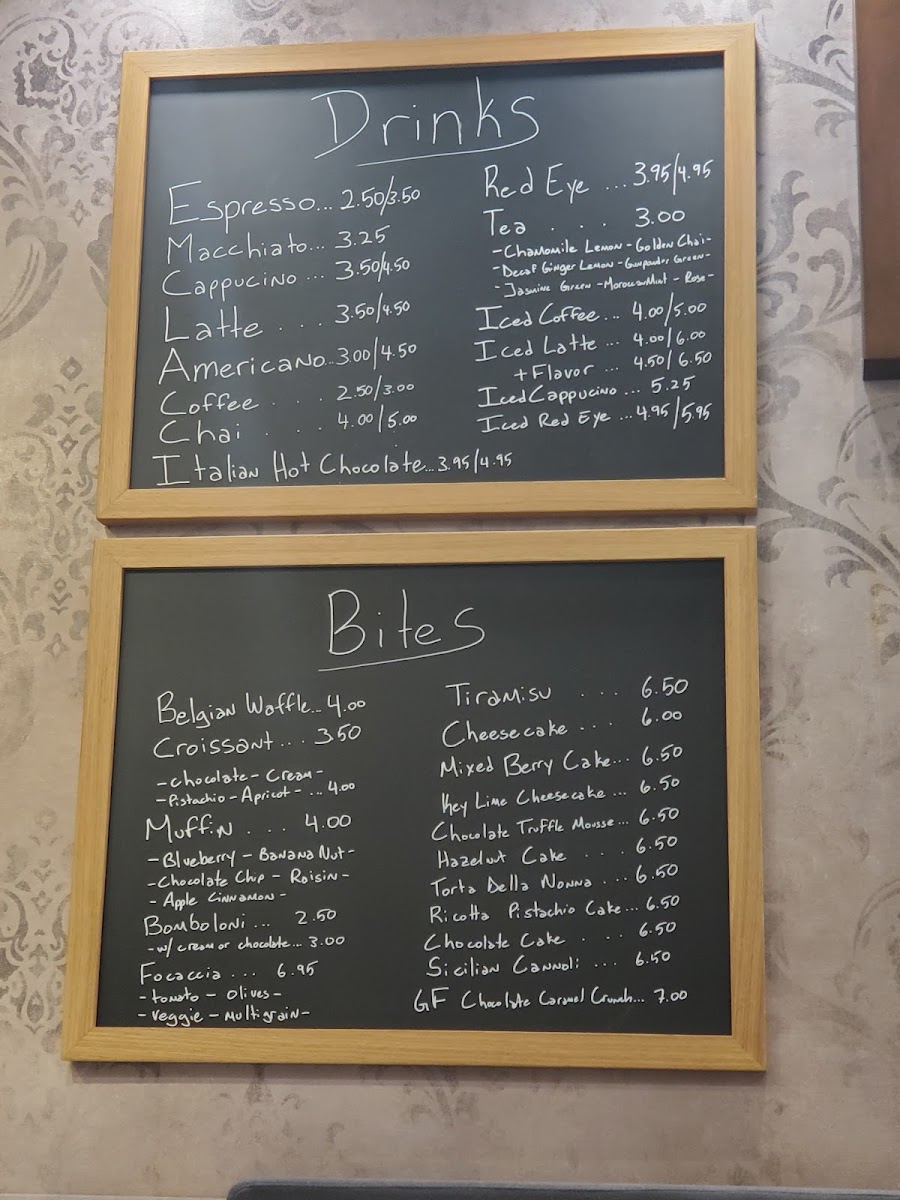 Drinks
Espresso... 2.50/3.50
Macchiato... 3.25
Cappucino ... 3.50/4.50
Latte . . . 3.50/4.50
Americano... 3.00/4.50
Coffee . . . 2.50/3.00
Chai . . . 4.00/5.00
Italian Hot Chocolate... 3.95/4.95
Red Eye ... 3.95/4.95
Tea . . . 3.00
-Chamomile Lemon - Golden Chai-
-Decaf Ginger Lemon - Gunpowder Green-
-Jasmine Green - Moroccan Mint - Rose-
Iced Coffee... 4.00/5.00
Iced Latte ... 4.00/6.00
+Flavor ... 4.50/6.50
Iced Cappucino ... 5.25
Iced Red Eye ... 4.95/5.95
Bites
Belgian Waffle... 4.00
Croissant... . 3.50
-Chocolate - Cream-
-Pistachio - Apricot- ... 4.00
Muffin . . . 4.00
-Blueberry - Banana Nut-
-Chocolate Chip - Raisin-
- Apple Cinnamon -
Bomboloni ... 2.50
-w/ cream or chocolate... 3.00
Focaccia ... 6.95
-tomato - olives-
-veggie - multigrain-
Tiramisu . . . 6.50
Cheesecake . . . 6.00
Mixed Berry Cake... 6.50
Key Lime Cheesecake ... 6.50
Chocolate Truffle Mousse... 6.50
Hazelnut Cake . . . 6.50
Torta Della Nonna ... 6.50
Ricotta Pistachio Cake... 6.50
Chocolate Cake . . . 6.50
Sicilian Cannoli ... 6.50
GF Chocolate Caramel Crunch... 7.00